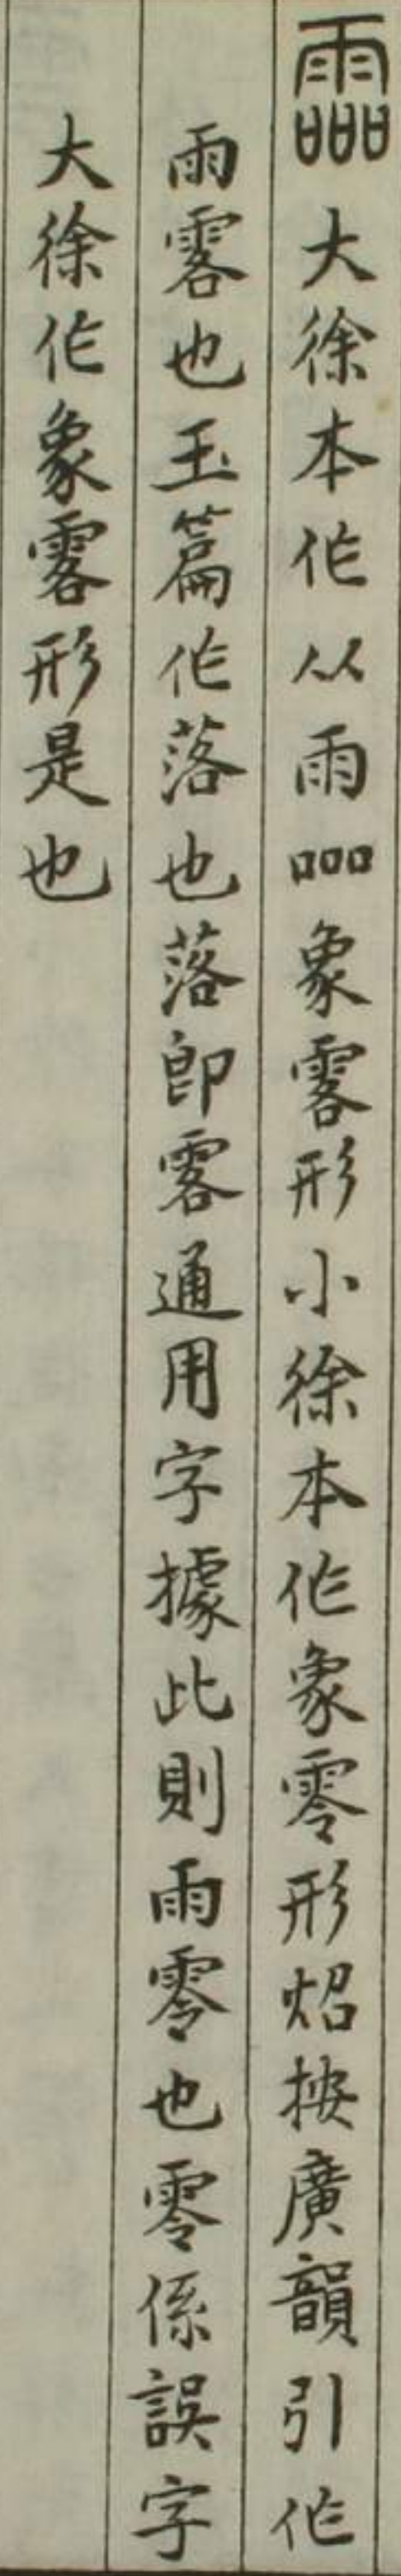 霝大徐本作从雨㗊象䨣形小徐本作象零形炤按廣韻引作
雨䨣也玉篇作落也落卽䨣通用字據此則雨零也零係誤字
大徐作象䨣形是也